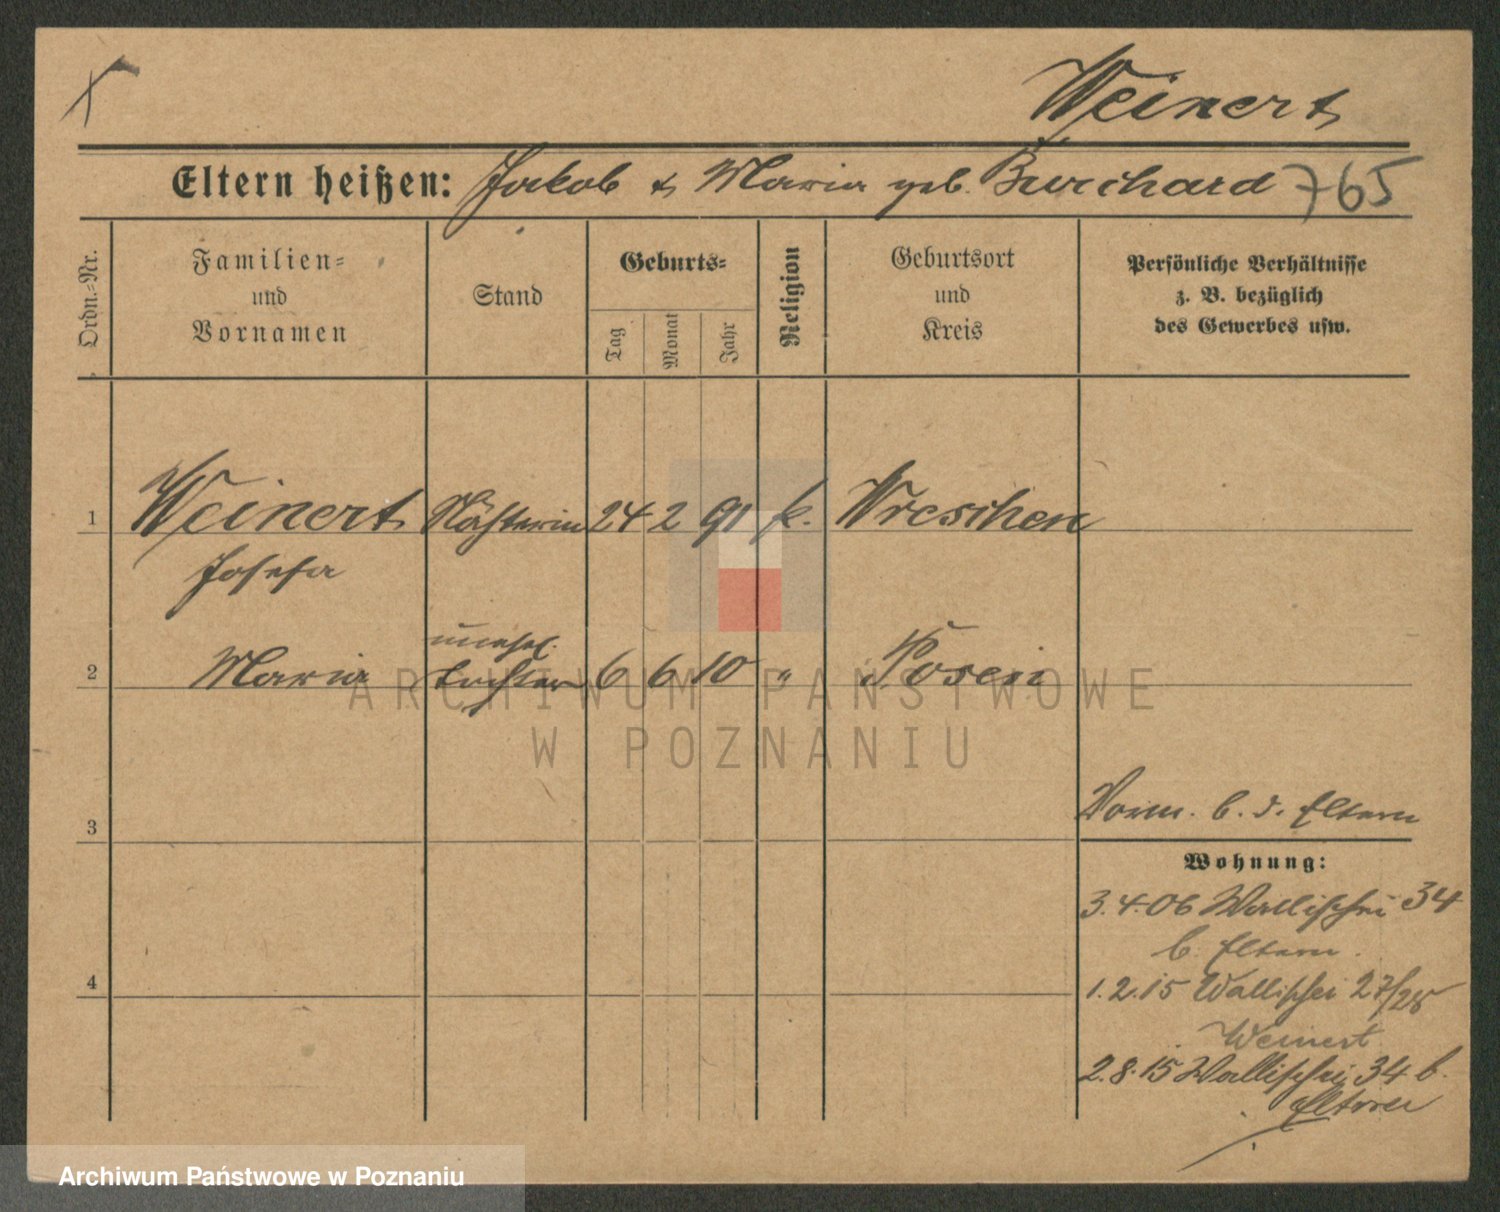 Weinert
Eltern heißen: Jakob & Maria geb. Burchard 765
Ordn.-Nr.
Familien-
und
Vornamen
Stand
Geburts-
Tag
Monat
Jahr
Religion
Geburtsort
und
Kreis
Persönliche Verhältnisse
z. B. bezüglich
des Gewerbes usw.
1 Weinert Näherin 24 2 91 k. Wreschen
Josefa
unehel.
2 Maria Tochter 6 6 10 " Posen
ARCHIWUM PAŃSTWOWE
W POZNANIU
Vorm. b. d. Eltern
3
Wohnung:
3.4.06 Wallischei 34
b. Eltern.
4
1.2.15 Wallischei 27/28
Weinert
2.8.15 Wallischei 34 b.
Eltern
Archiwum Państwowe w Poznaniu